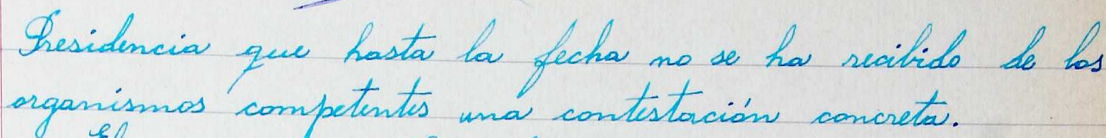 Presidencia que hasta la fecha no se ha recibido de los
organismos competentes una contestación concreta.
El